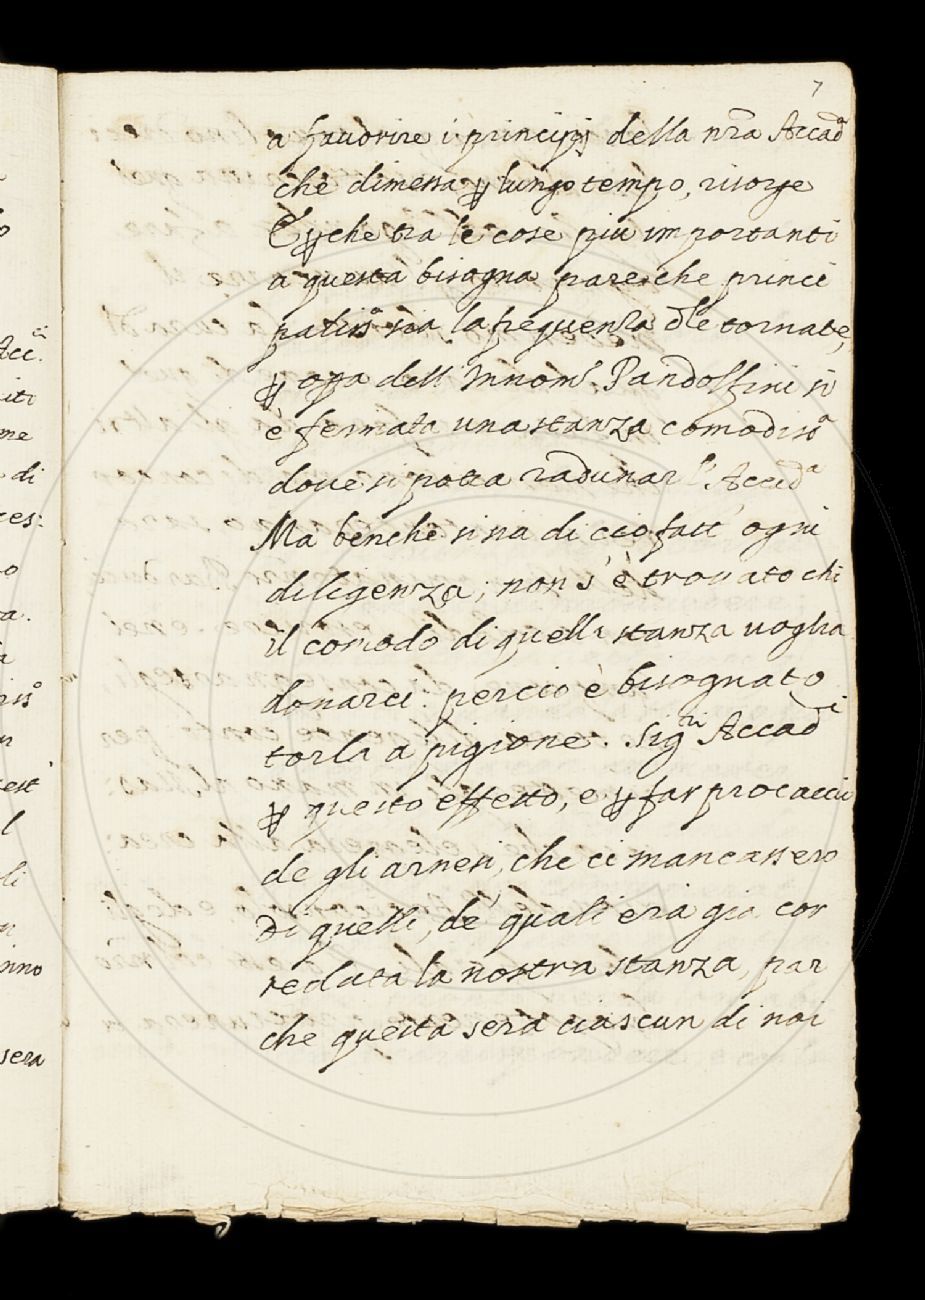 7
a fauorire i principij della nr̃a Accad.ᵃ
che dimessa ꝑ lungo tempo, risorge
E ꝑche tra le cose piu importanti
a questa bisogna pare che princi
paliss.ᵃ sia la frequenza d.ˡᵉ tornate,
ꝑ opa dell' Innom.ᵗᵒ Pandolfini si
è fermata una stanza comodiss.ᵃ
doue si possa radunar l' Accad.ᵃ
Ma benchè si sia di ciò fatt' ogni
diligenza, non s' è trouato chi
il comodo di quella stanza uoglia
donarci. perciò è bisognato
torla a pigione. Sig.ʳⁱ Accad.ⁱ
ꝑ questo effetto, e ꝑ far procaccio
de gli arnesi, che ci mancassero
di quelli, de' quali era gia cor
redata la nostra stanza, par
che questa sera ciascun di noi
Acc.ᶜⁱ
iti
me
di
ces:
o
a.
a
ris.ᵒ
n
est
l
li
n
nno
sera